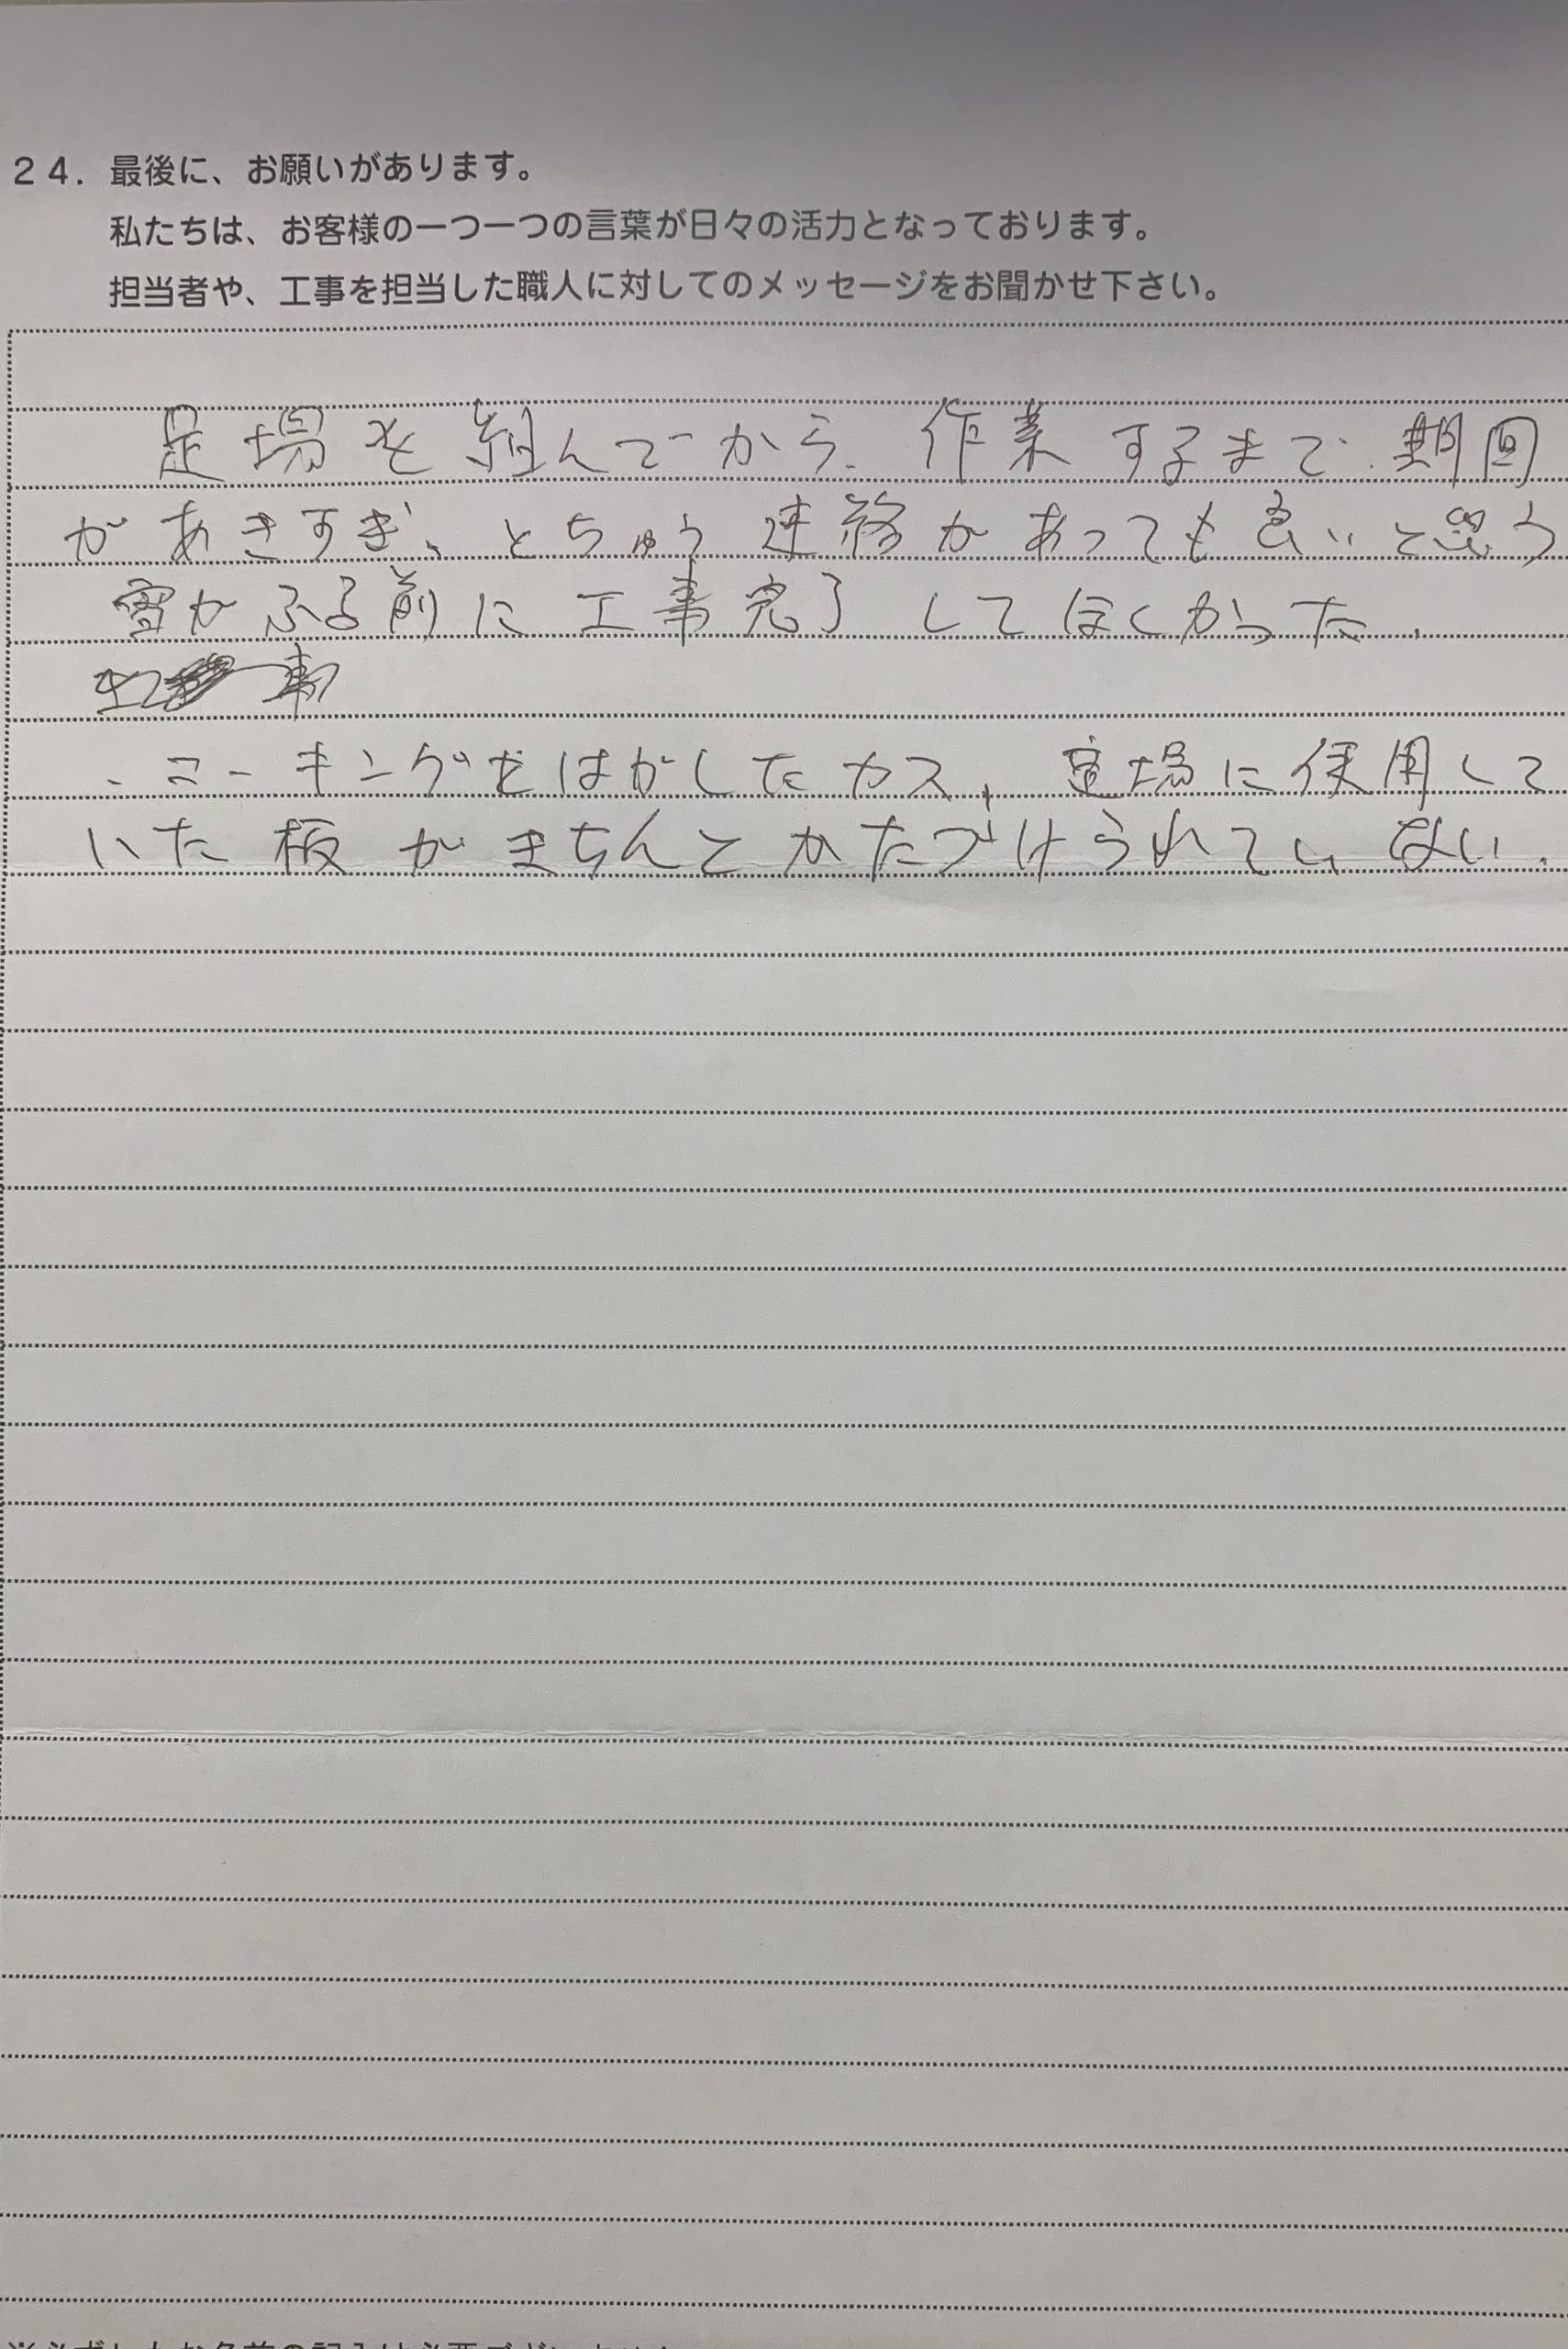 24．最後に、お願いがあります。
私たちは、お客様の一つ一つの言葉が日々の活力となっております。
担当者や、工事を担当した職人に対してのメッセージをお聞かせ下さい。
足場を組んでから、作業するまで、期間
があきすぎ、とちゅう連絡があっても良いと思う
雪がふる前に工事完了してほしかった．
・コーキングをはがしたカス、足場に使用して
いた板がきちんとかたづけられていない．